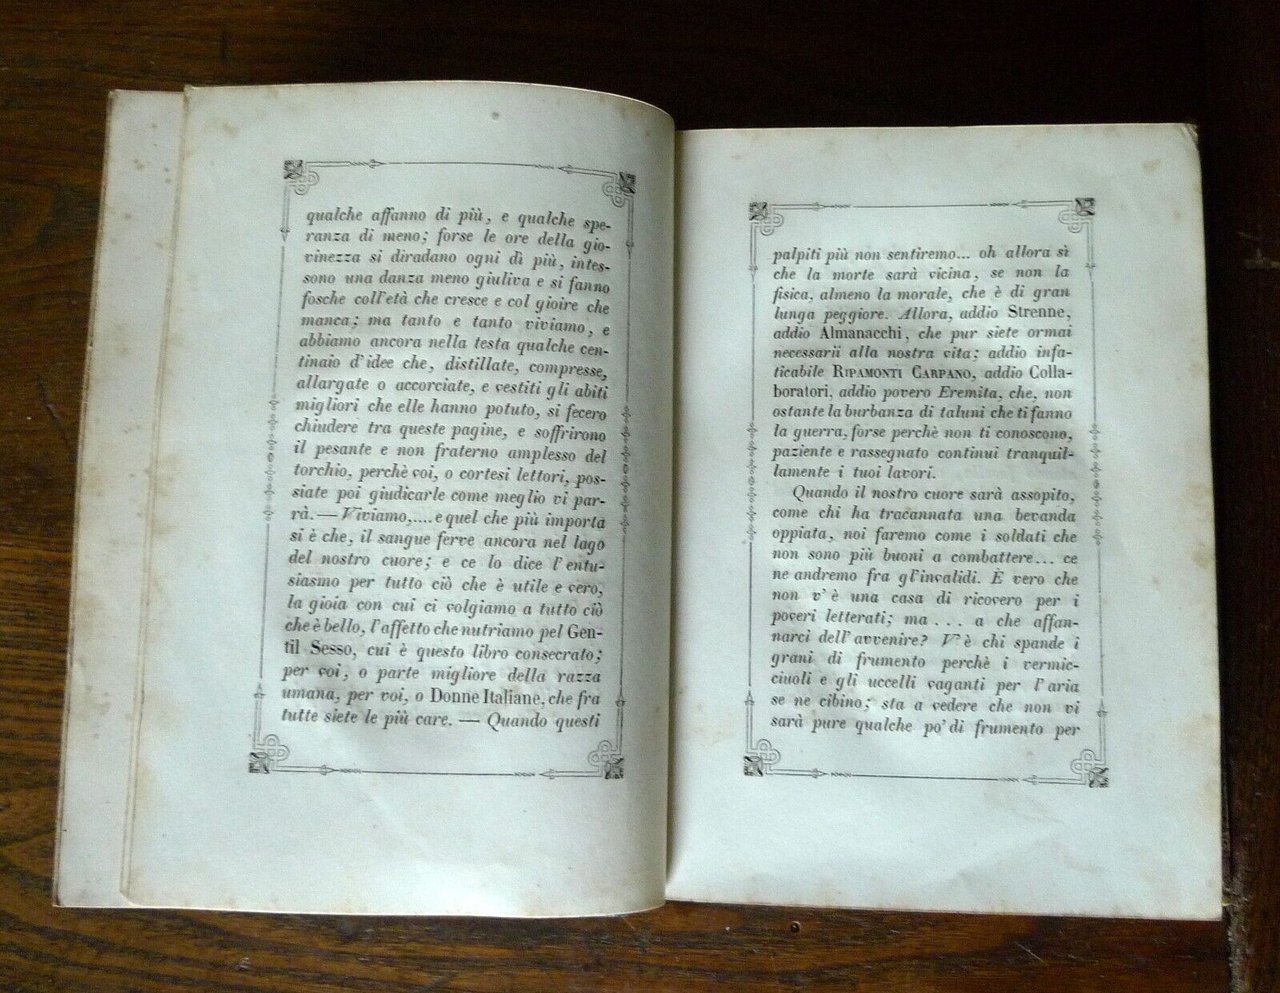 qualche affanno di più, e qualche spe-
ranza di meno; forse le ore della gio-
vinezza si diradano ogni dì più, intes-
sono una danza meno giuliva e si fanno
fosche coll'età che cresce e col gioire che
manca; ma tanto e tanto viviamo, e
abbiamo ancora nella testa qualche cen-
tinaio d'idee che, distillate, compresse,
allargate o accorciate, e vestiti gli abiti
migliori che elle hanno potuto, si fecero
chiudere tra queste pagine, e soffrirono
il pesante e non fraterno amplesso del
torchio, perchè voi, o cortesi lettori, pos-
siate poi giudicarle come meglio vi par-
rà. — Viviamo,.... e quel che più importa
si è che, il sangue ferve ancora nel lago
del nostro cuore; e ce lo dice l'entu-
siasmo per tutto ciò che è utile e vero,
la gioia con cui ci volgiamo a tutto ciò
che è bello, l'affetto che nutriamo pel Gen-
til Sesso, cui è questo libro consecrato;
per voi, o parte migliore della razza
umana, per voi, o Donne Italiane, che fra
tutte siete le più care. — Quando questi
palpiti più non sentiremo... oh allora sì
che la morte sarà vicina, se non la
fisica, almeno la morale, che è di gran
lunga peggiore. Allora, addio Strenne,
addio Almanacchi, che pur siete ormai
necessarii alla nostra vita; addio infa-
ticabile RIPAMONTI CARPANO, addio Colla-
boratori, addio povero Eremita, che, non
ostante la burbanza di taluni che ti fanno
la guerra, forse perchè non ti conoscono,
paziente e rassegnato continui tranquil-
lamente i tuoi lavori.
Quando il nostro cuore sarà assopito,
come chi ha tracannata una bevanda
oppiata, noi faremo come i soldati che
non sono più buoni a combattere... ce
ne andremo fra gl'invalidi. È vero che
non v'è una casa di ricovero per i
poveri letterati; ma ... a che affan-
narci dell'avvenire? V'è chi spande i
grani di frumento perchè i vermic-
ciuoli e gli uccelli vaganti per l'aria
se ne cibino; sta a vedere che non vi
sarà pure qualche po' di frumento per